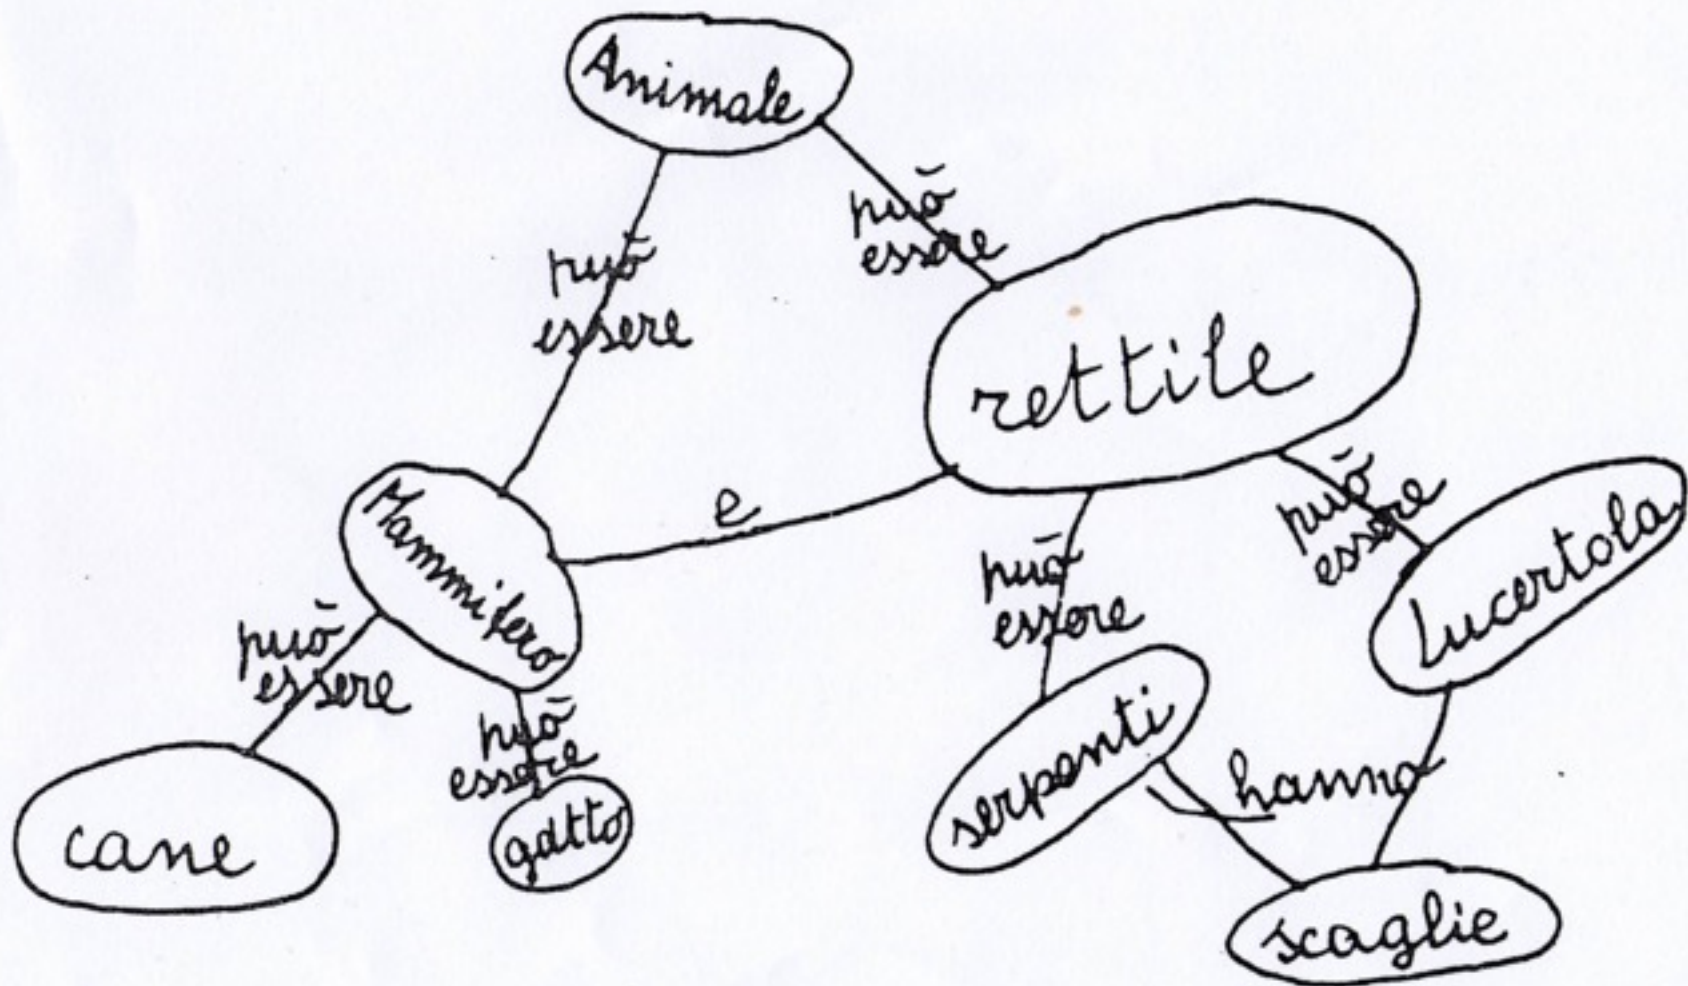 Animale
può
essere
può
essere
rettile
Mammifero
e
può
essere
può
essere
può
essere
può
essere
Lucertola
cane
gatto
serpenti
hanno
scaglie